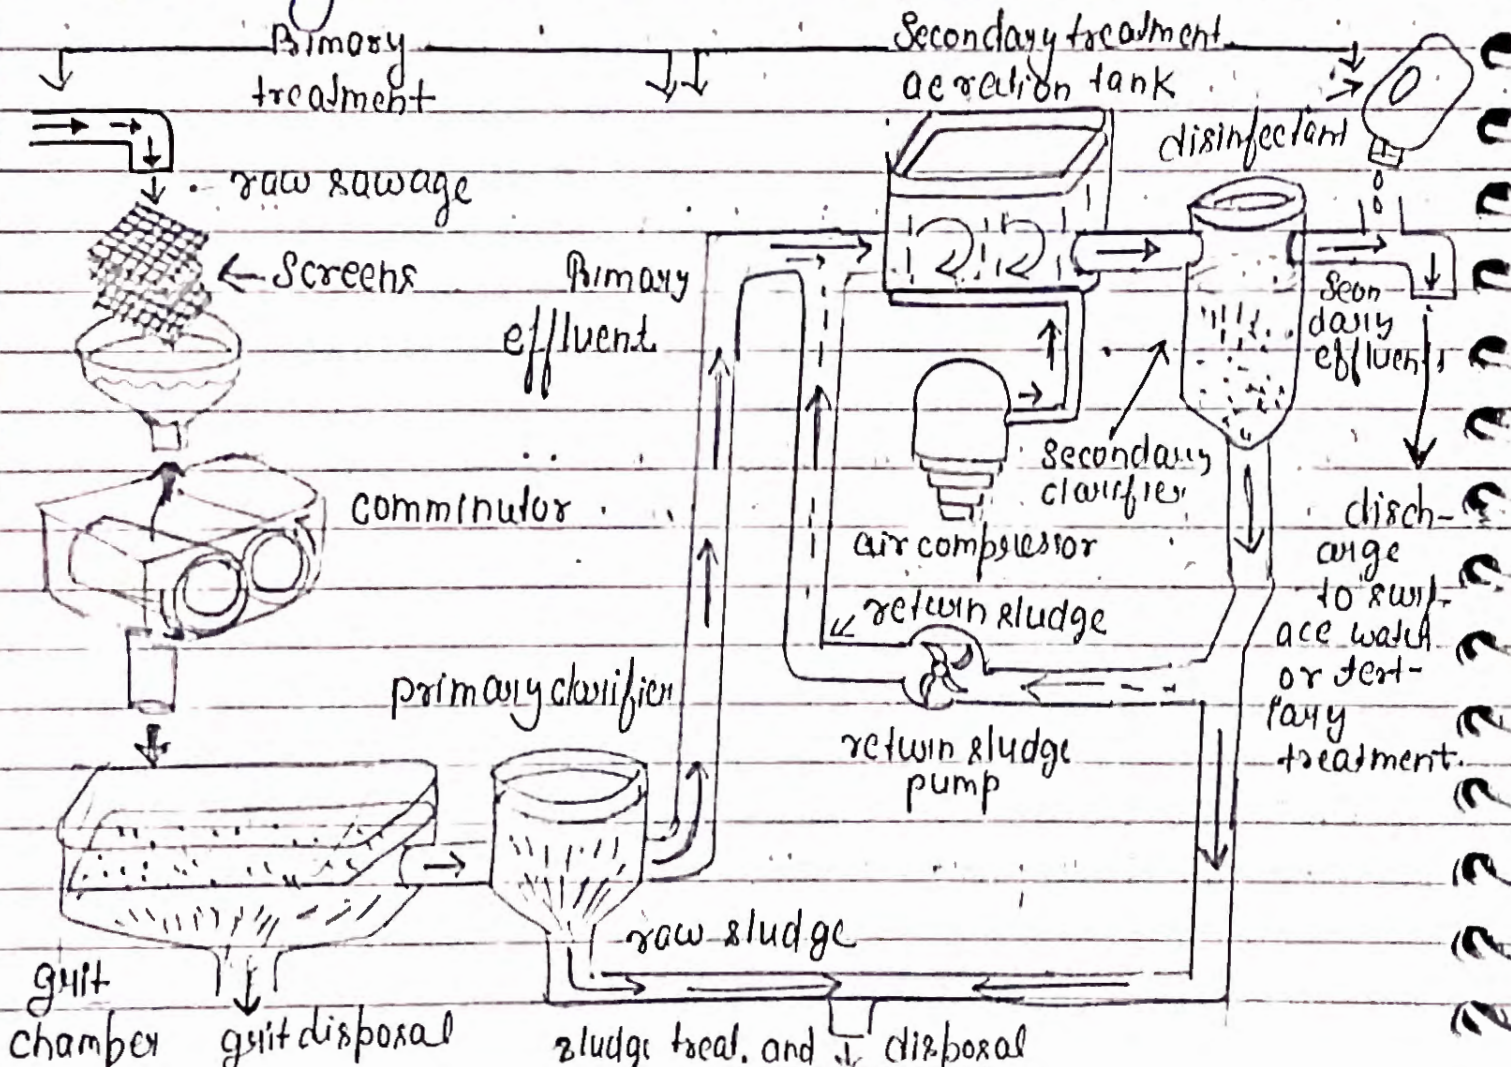 Primary
treatment
Secondary treatment
aeration tank
disinfectant
raw sawage
Screens
Primary
effluent
Secon
dary
effluents
comminutor
secondary
clarifier
air compressor
disch-
arge
to surf-
ace water
or tert-
iary
treatment.
return sludge
primary clarifier
return sludge
pump
raw sludge
grit
chamber
grit disposal
sludge treat. and disposal